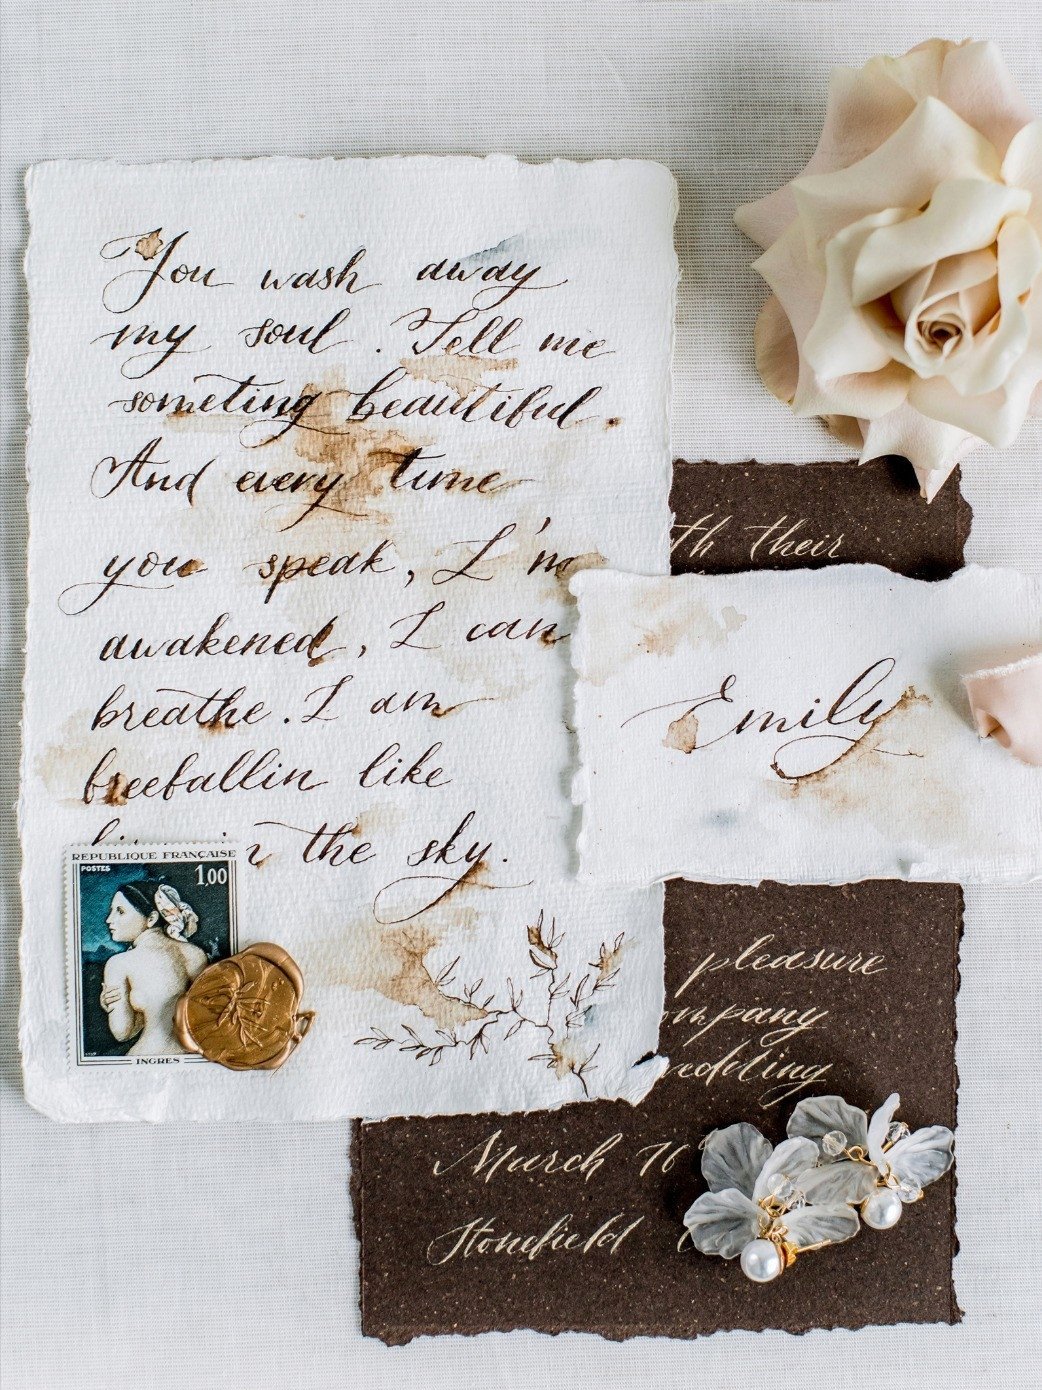 You wash away
my soul. Tell me
someting beautiful.
And every time
you speak, I'm
awakened, I can
breathe. I am
freefallin like
the sky.
REPUBLIQUE FRANÇAISE
POSTES
1,00
INGRES
their
Emily
pleasure
March 16
Stonefield